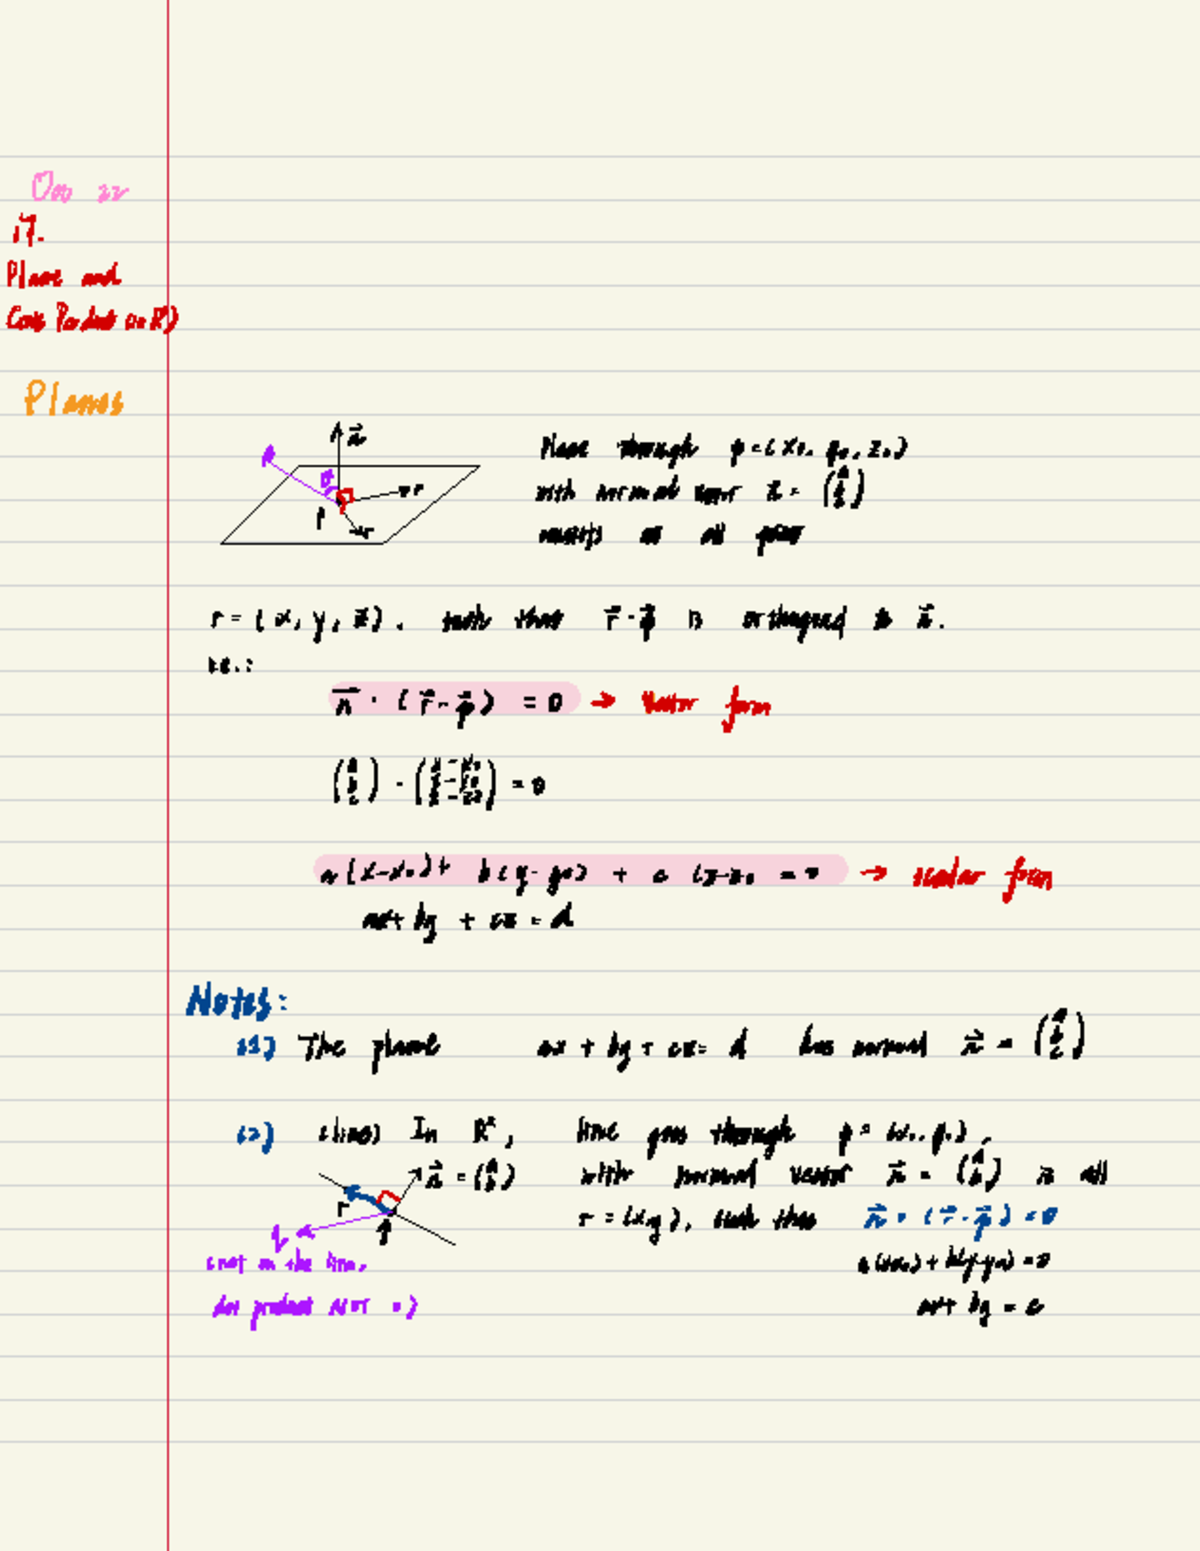 17.
Plane and
Cross Product (in R³)
Planes
n⃗
θ
r
p
r
Plane through p = (x₀, y₀, z₀)
with normal vector n⃗ = (a b c)
consists of all points
r = (x, y, z), such that r⃗ - p⃗ is orthogonal to n⃗.
i.e.:
n⃗ · (r⃗ - p⃗) = 0 → vector form
(a b c) · (x - x₀ y - y₀ z - z₀) = 0
a(x-x₀) + b(y-y₀) + c(z-z₀ = 0 → scalar form
ax + by + cz = d
Notes:
(1) The plane ax + by + cz = d has normal n⃗ = (a b c)
(2) (lines) In R², line goes through p = (x₀, y₀),
n⃗ = (a b) with normal vector n⃗ = (a b) is all
r p r = (x,y), such that n⃗ · (r⃗ - p⃗) = 0
q
(not on the line, a(x-x₀) + b(y-y₀) = 0
dot product NOT 0) ax + by = c